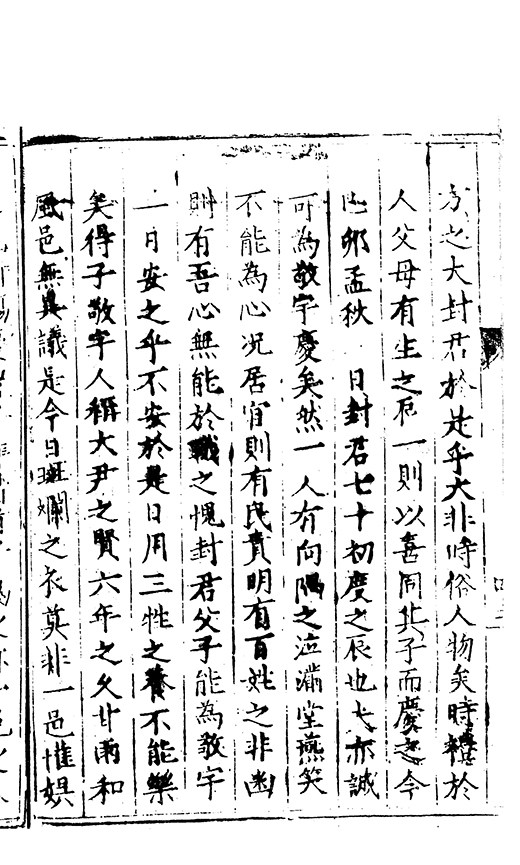 之大封君於是乎大非時俗人物矣時於
人父母有生之辰一則以喜同其子而慶之今
卯孟秋　日封君七十初度之辰也亦誠
可為敬宇慶矣然一人有向隅之泣滿堂燕笑
不能為心况居官則有民責明有百姓之非幽
則有吾心無能於職之愧封君父子能為敬宇
一日安之乎不安於是日用三牲之養不能樂
矣得子敬宇人稱大尹之賢六年之久甘雨和
風邑無異議是今日斑斕之衣莫非一邑懽娯